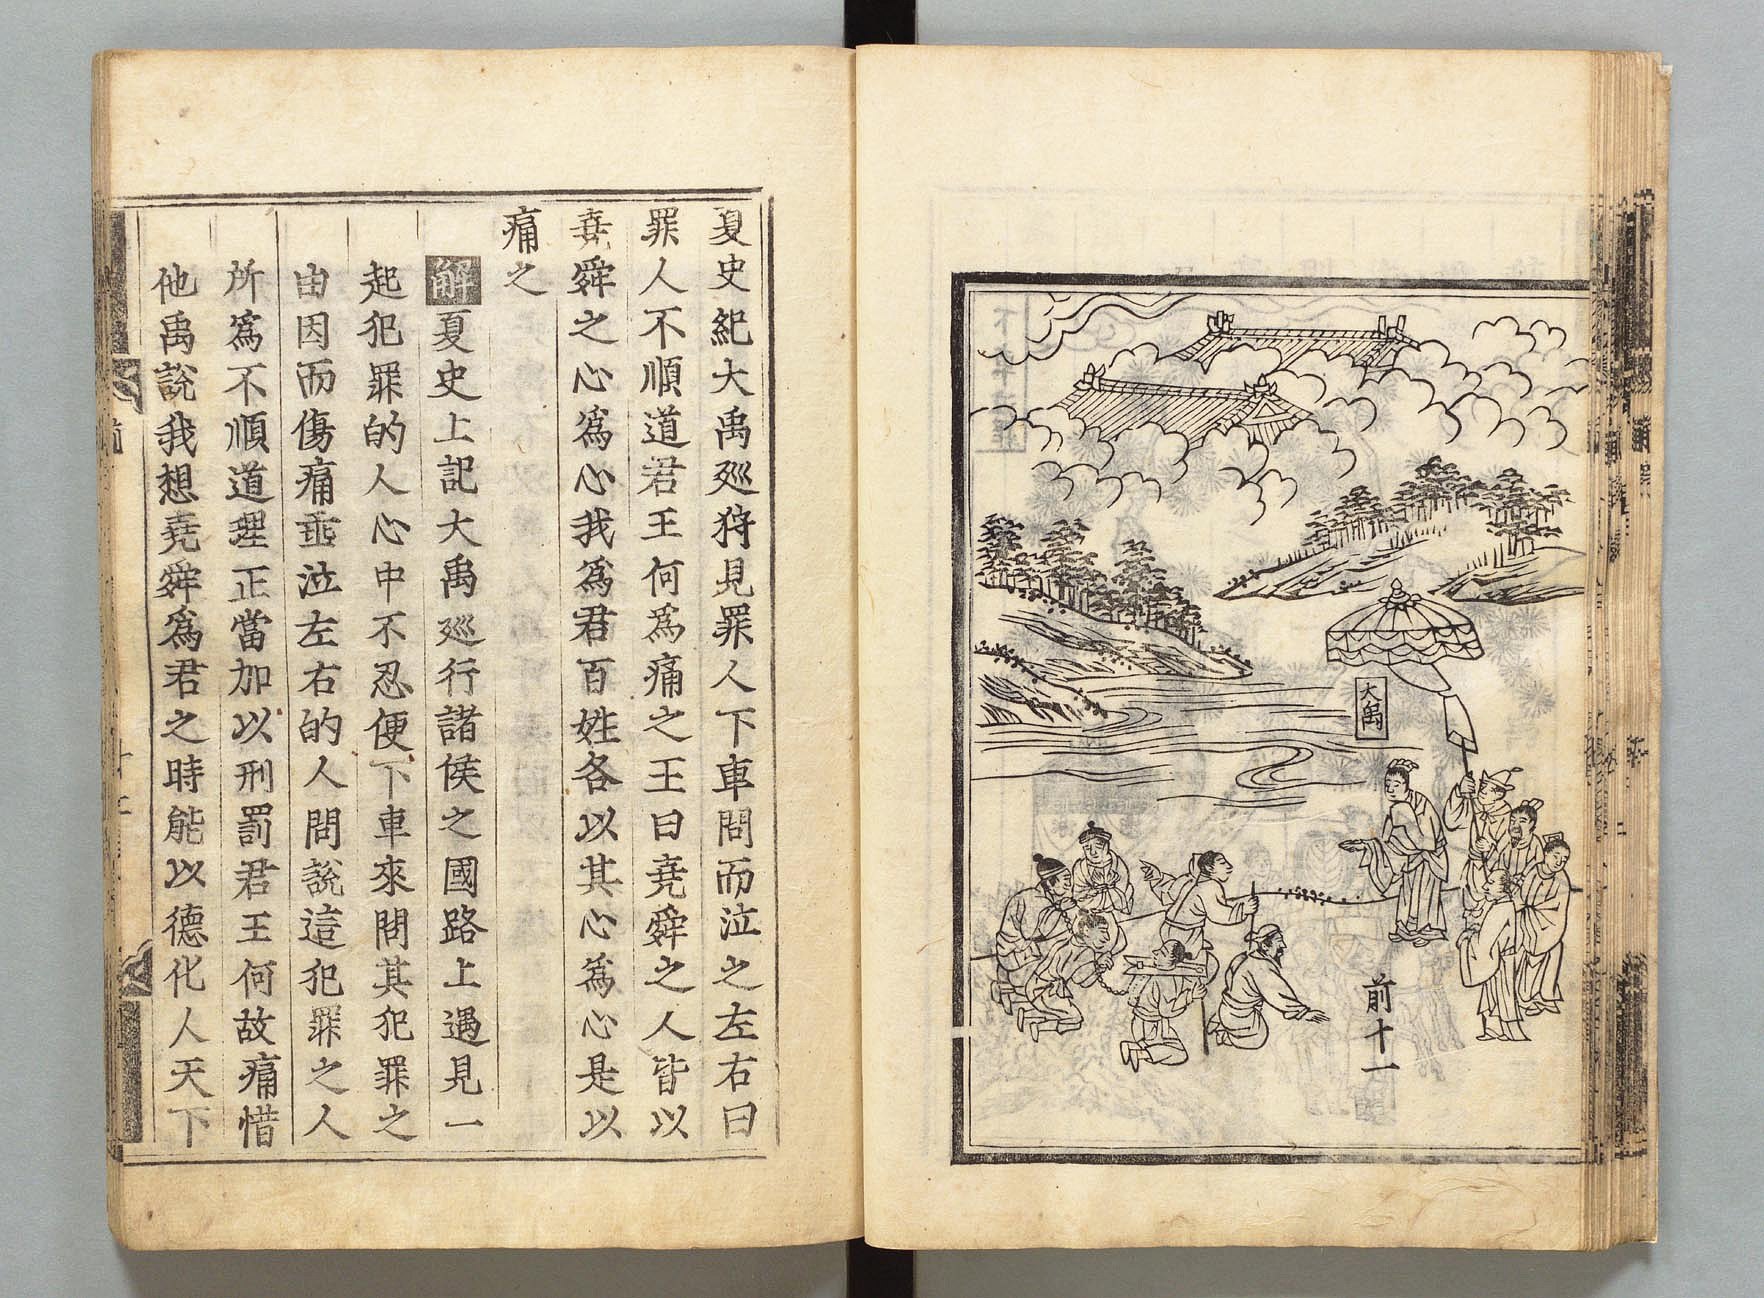 大禹
前十一
夏史紀大禹廵狩見罪人下車問而泣之左右曰
罪人不順道君王何爲痛之王曰堯舜之人皆以
堯舜之心爲心我爲君百姓各以其心爲心是以
痛之
解夏史上記大禹廵行諸侯之國路上遇見一
起犯罪的人心中不忍便下車來問其犯罪之
由因而傷痛垂泣左右的人問說這犯罪之人
所爲不順道理正當加以刑罰君王何故痛惜
他禹說我想堯舜爲君之時能以德化人天下